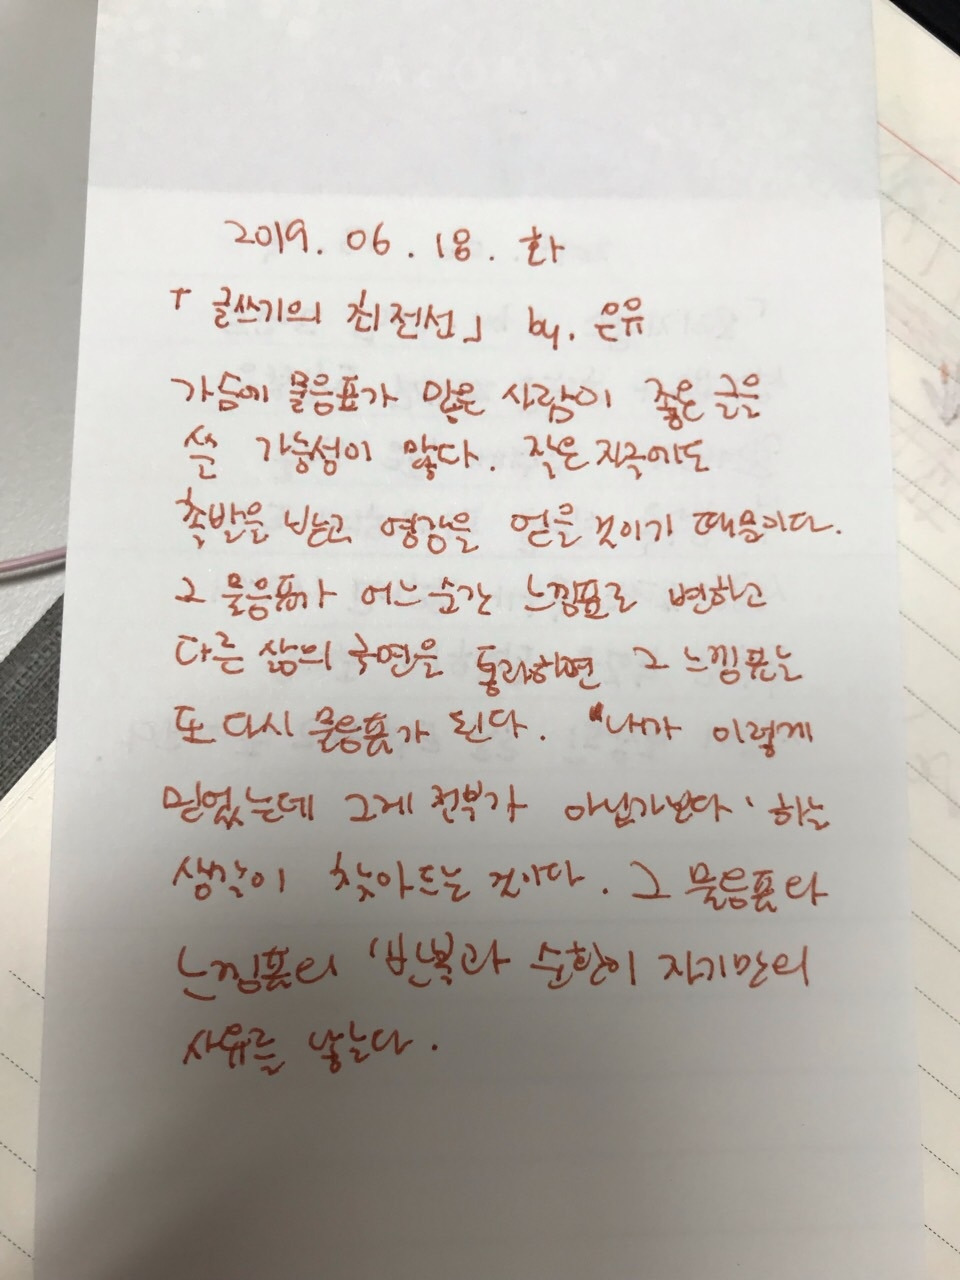 2019. 06. 18. 화
「글쓰기의 최전선」 by. 은유
가슴에 물음표가 많은 사람이 좋은 글을
쓸 가능성이 많다. 작은 자극에도
촉발을 받고 영감을 얻을 것이기 때문이다.
그 물음표가 어느 순간 느낌표로 변하고
다른 삶의 국면을 통과하면 그 느낌표는
또 다시 물음표가 된다. "내가 이렇게
믿었는데 그게 전부가 아닌가보다' 하는
생각이 찾아드는 것이다. 그 물음표와
느낌표의 '반복과 순환이 자기만의
사유를 낳는다.